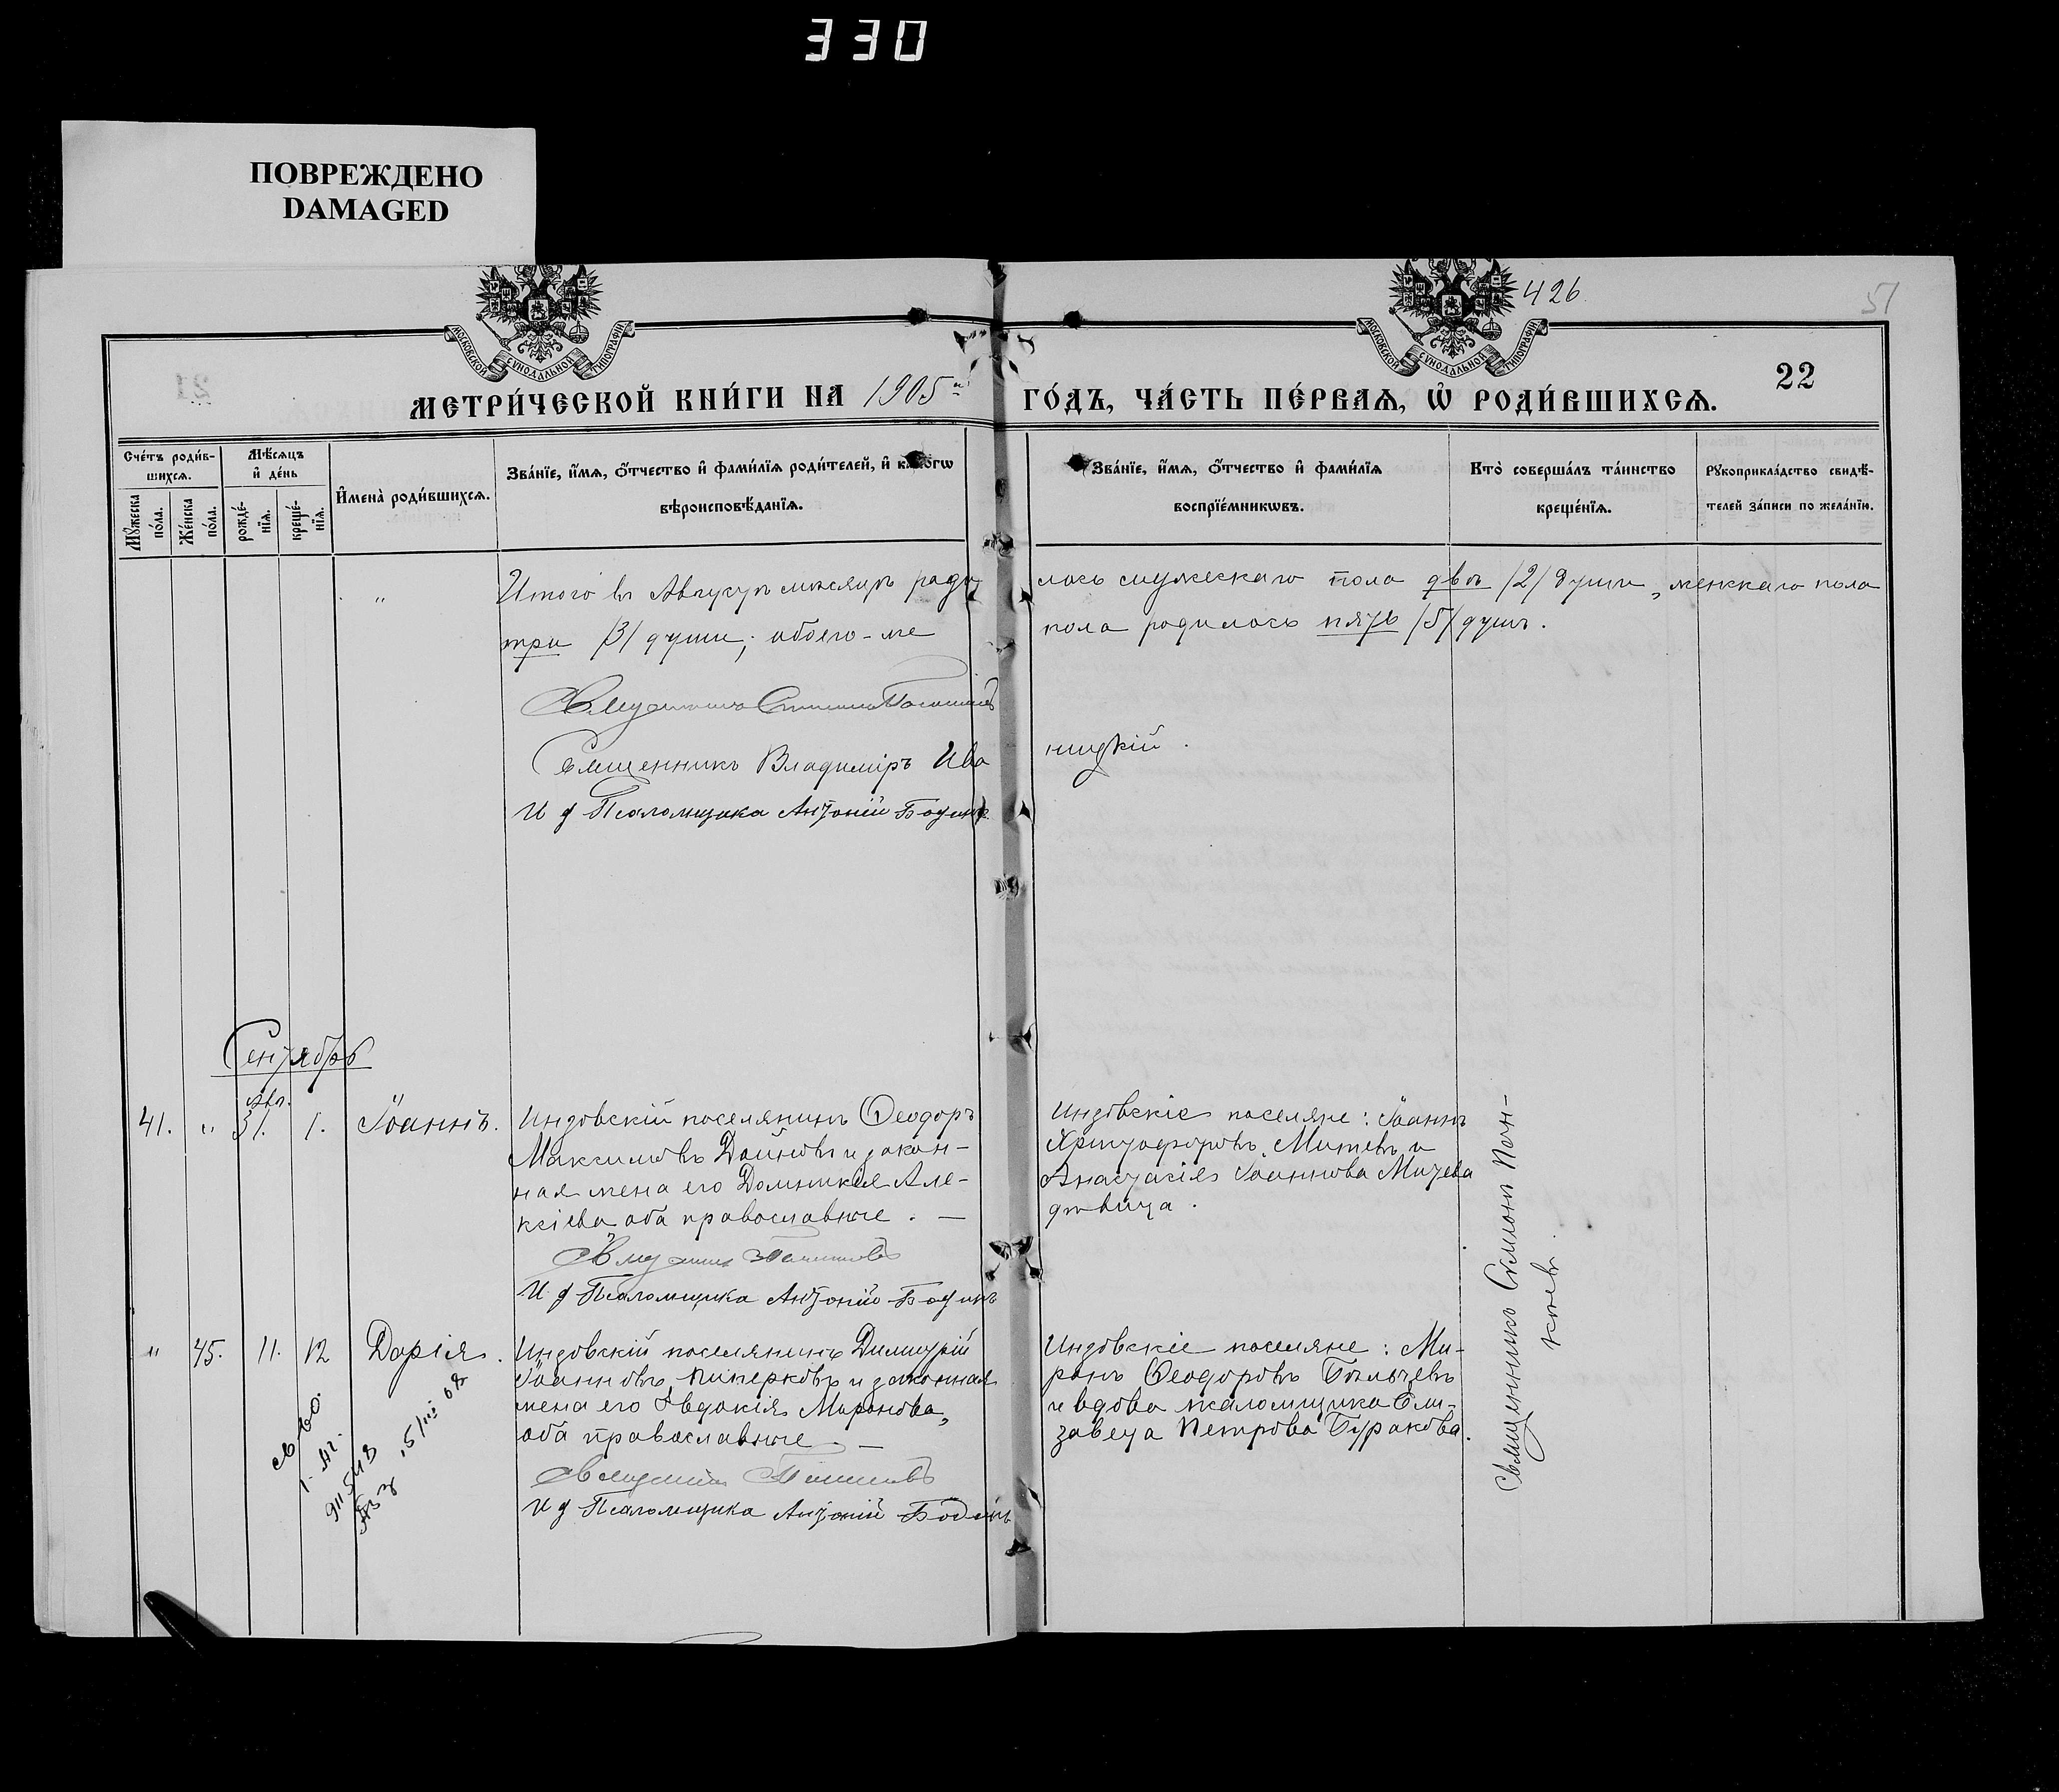 330
ПОВРЕЖДЕНО
DAMAGED
426
51
22
МОСКОВСКОЙ СѴНОДАЛЬНОЙ ТИПОГРАФІИ
МОСКОВСКОЙ СѴНОДАЛЬНОЙ ТИПОГРАФІИ
МЕТРИ́ЧЕСКОЙ КНИ́ГИ НА 1905й ГО́ДЪ, ЧА́СТЬ ПЕ́РВАѦ, Ѡ҆ РОДИ́ВШИХСѦ.
Сче́тъ роди́в-
шихсѧ.
Мꙋ́жеска по́ла.
Же́нска по́ла.
Мѣ́сѧцъ
и҆ де́нь
рожде́-
нїѧ.
креще́-
нїѧ.
И҆мена̀ роди́вшихсѧ.
Зва́нїе, и҆́мѧ, ѻ҆́тчество и҆ фами́лїѧ роди́телей, и҆ како́гѡ
вѣроисповѣ́данїѧ.
Зва́нїе, и҆́мѧ, ѻ҆́тчество и҆ фами́лїѧ
воспрїе́мникѡвъ.
Кто̀ соверша́лъ та́инство
креще́нїѧ.
Рꙋкоприкла́дство свидѣ́-
телей за́писи по жела́нїю.
" Итого въ Августѣ мѣсяцѣ роди лось мужескаго пола двѣ /2/ души, женскаго пола
три /3/ души; обоего-же пола родилось пять /5/ душъ.
Священникъ Владиміръ Ива ницкій.
И д Псаломщика Антоній Бодинъ
Сентябрь
Авг.
41. " 31. 1. Іоаннъ.
Индовскій поселянинъ Ѳеодоръ
Максимовъ Дойновъ и закон-
ная жена его Домникія Але-
ксіева оба православные. —
И д Псаломщика Антоній Бодинъ
Индовскіе поселяне: Іоаннъ
Христофоровъ Митевъ и
Анастасія Іоаннова Митева
дѣвица.
Священникъ Симеонъ Пон-
" 45. 11. 12 Дарія.
Индовскій поселянинъ Димитрій
Іоанновъ Пиперковъ и законная
жена его Евдокія Миронова,
оба православные. —
И д Псаломщика Антоній Бодинъ
Индовскіе поселяне: Ми-
ронъ Ѳеодоровъ
и вдова псаломщика Ели-
завета Петрова Буракова.